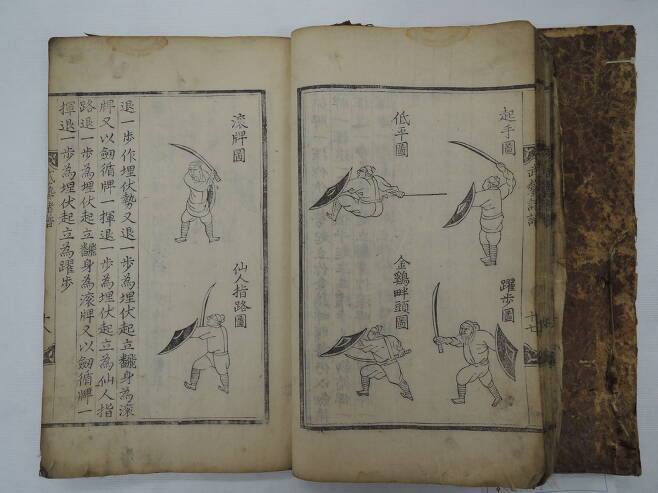 武藝諸譜
十七
起手圖
躍歩圖
低平圖
金鷄畔頭圖
滚牌圖
仙人指路圖
退一歩作埋伏勢又退一歩為埋伏起立飜身為滚
牌又以劔循牌一揮退一歩為埋伏起立為仙人指
路退一歩為埋伏起立飜身為滚牌又以劔循牌一
揮退一歩為埋伏起立為躍歩
十八